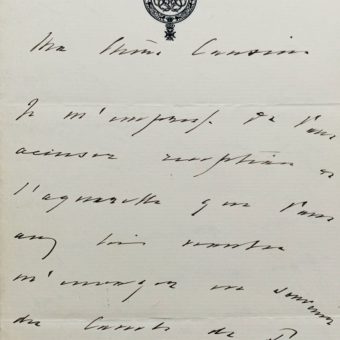 Ma chère Cousine
Je m'empresse de vous
accuser réception de
l'aquarelle que vous
avez bien voulu
m'envoyer en souvenir
du Comte de